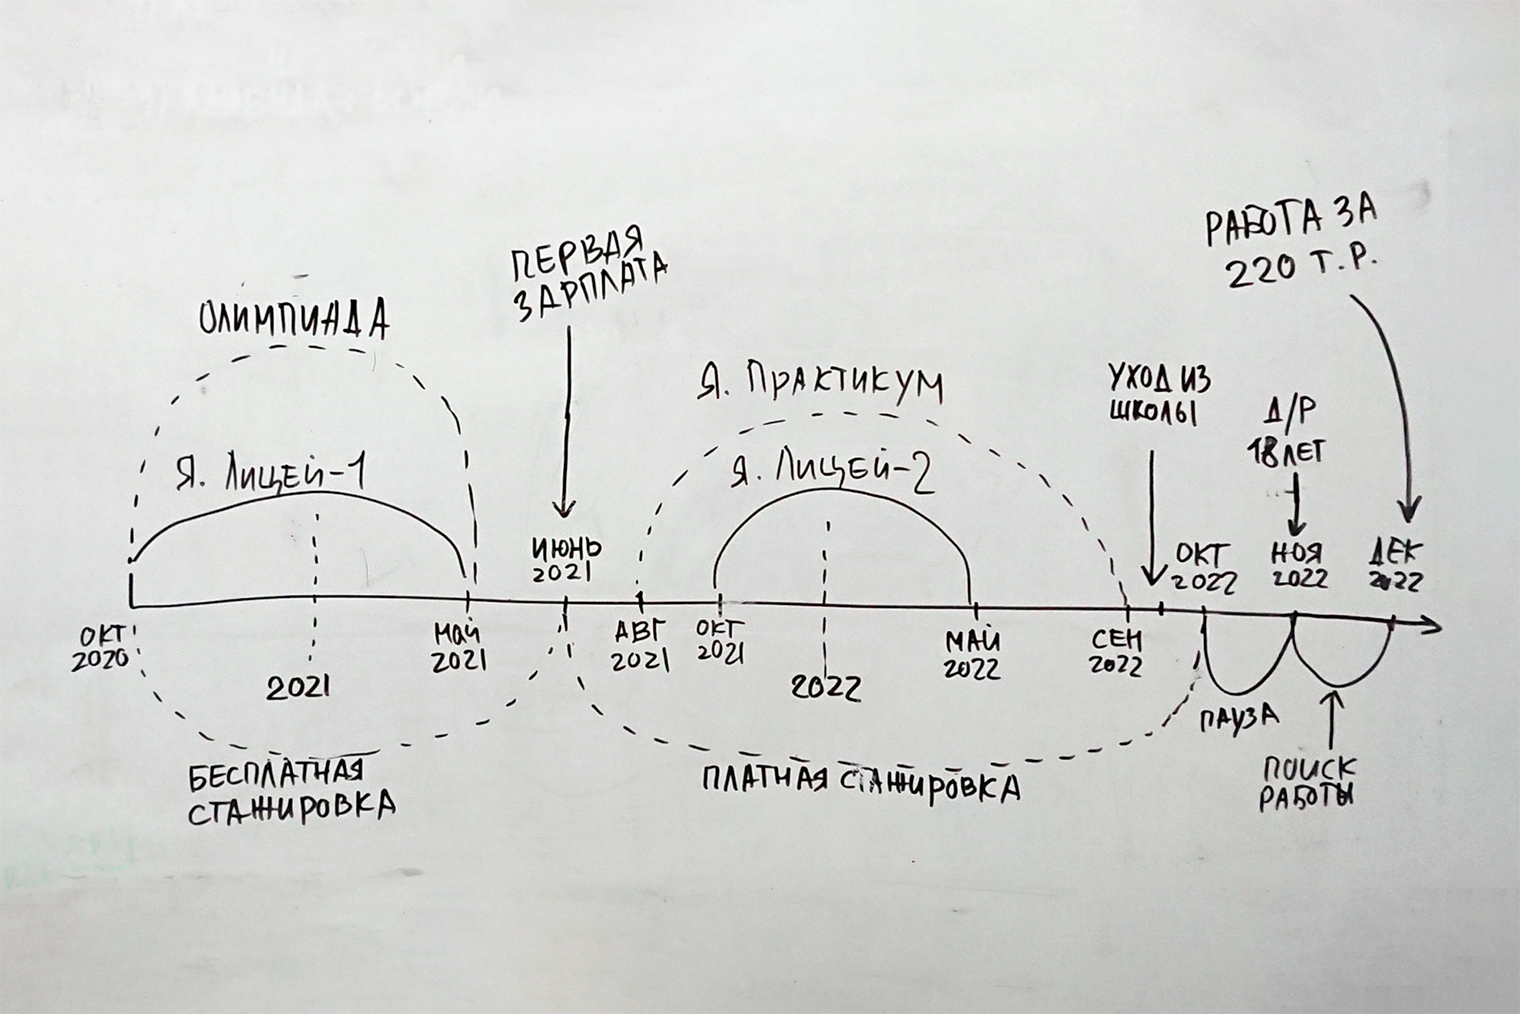 РАБОТА ЗА
220 Т.Р.
ПЕРВАЯ
ЗАРПЛАТА
ОЛИМПИАДА
Я. ПРАКТИКУМ
УХОД ИЗ
ШКОЛЫ
Д/Р
18 ЛЕТ
Я. ЛИЦЕЙ-1
Я. ЛИЦЕЙ-2
ИЮНЬ
2021
ОКТ
2022
НОЯ
2022
ДЕК
2022
ОКТ
2020
МАЙ
2021
АВГ
2021
ОКТ
2021
МАЙ
2022
СЕН
2022
2021
2022
ПАУЗА
БЕСПЛАТНАЯ
СТАЖИРОВКА
ПЛАТНАЯ СТАЖИРОВКА
ПОИСК
РАБОТЫ